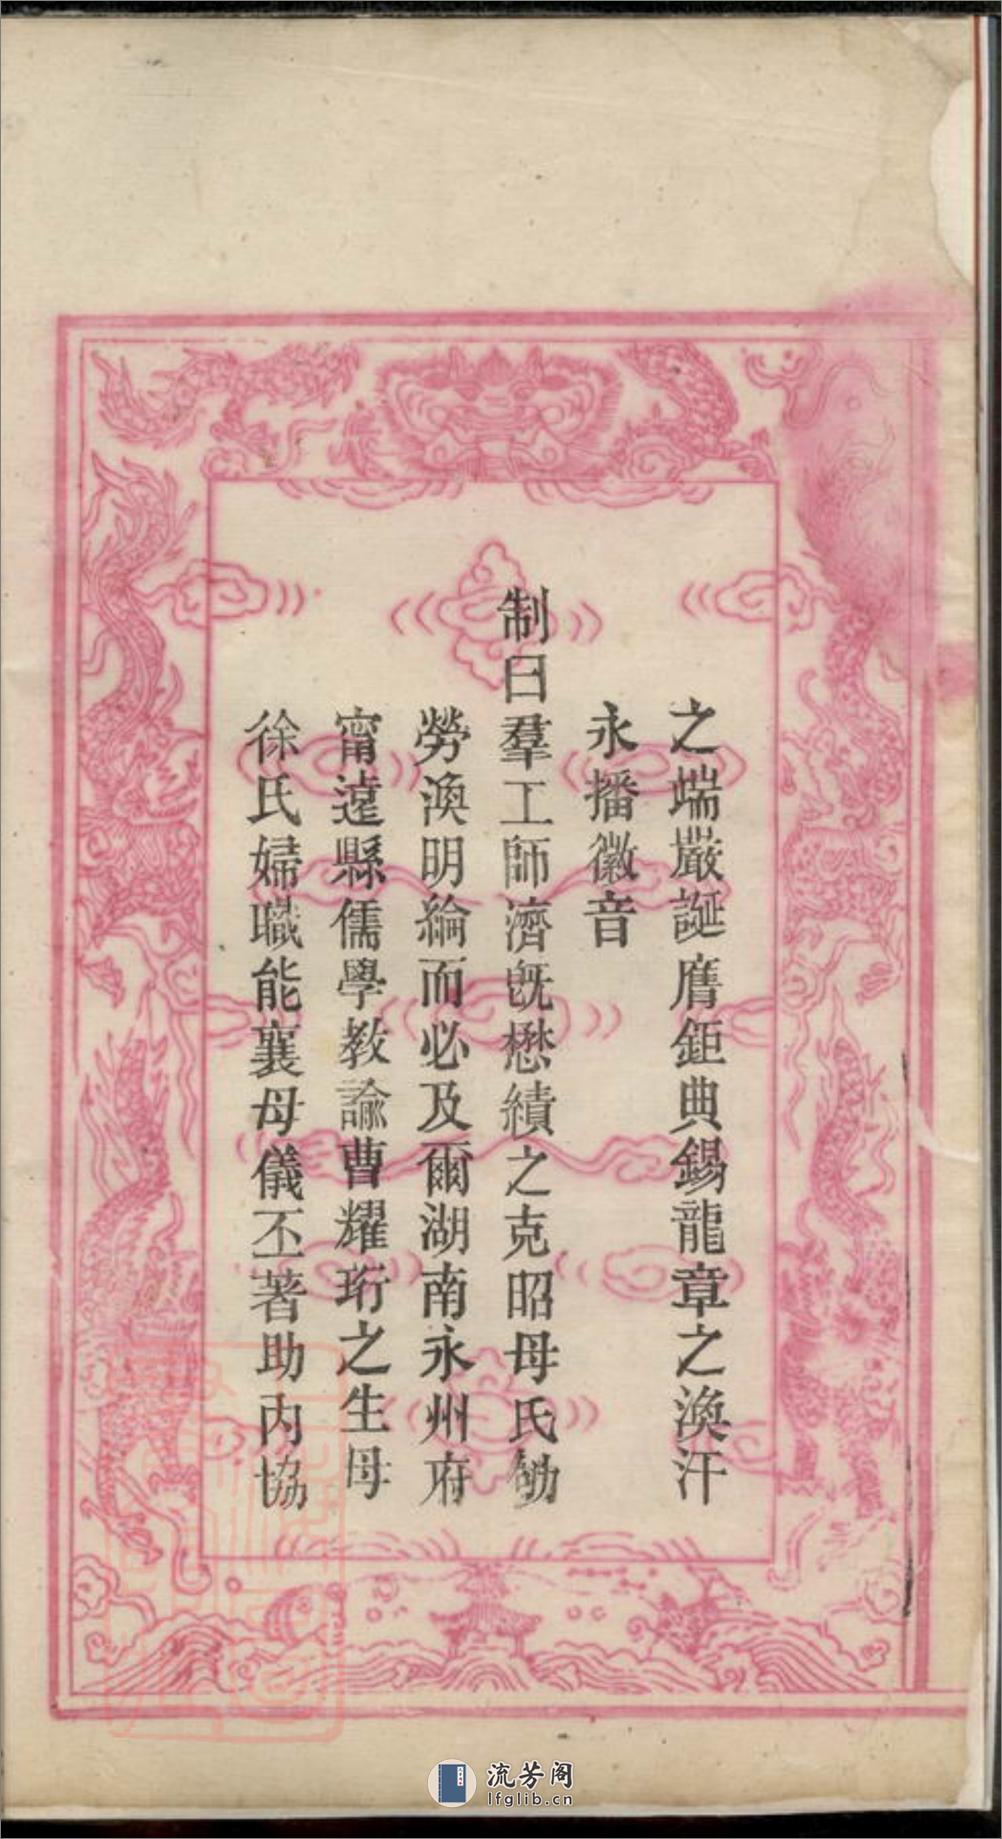 之端嚴誕膺鉅典錫龍章之渙汗
永播徽音
制曰羣工師濟旣懋績之克昭母氏劬
勞渙明綸而必及爾湖南永州府
甯遠縣儒學教諭曹耀珩之生母
徐氏婦職能襄母儀丕著助內協
流芳阁
lfglib.cn